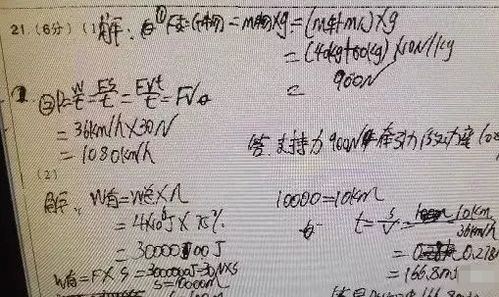 21.(6分) (1)解: ① F支=G物=m物×g=(m车+m人)×g
=(40kg+60kg)×10N/kg
= 900N
② P=W/t=FS/t=FVt/t=FV
=36km/h×30N
=1080km/h
答:支持力900N
(2)
解: W有=W总×η
=4×10 J×75%
=3000000J
W有=F×S=300000J=30N×S
S=10000m
10000=10km
t=S/V= 10km/36km/h
=0.278
=166.8m